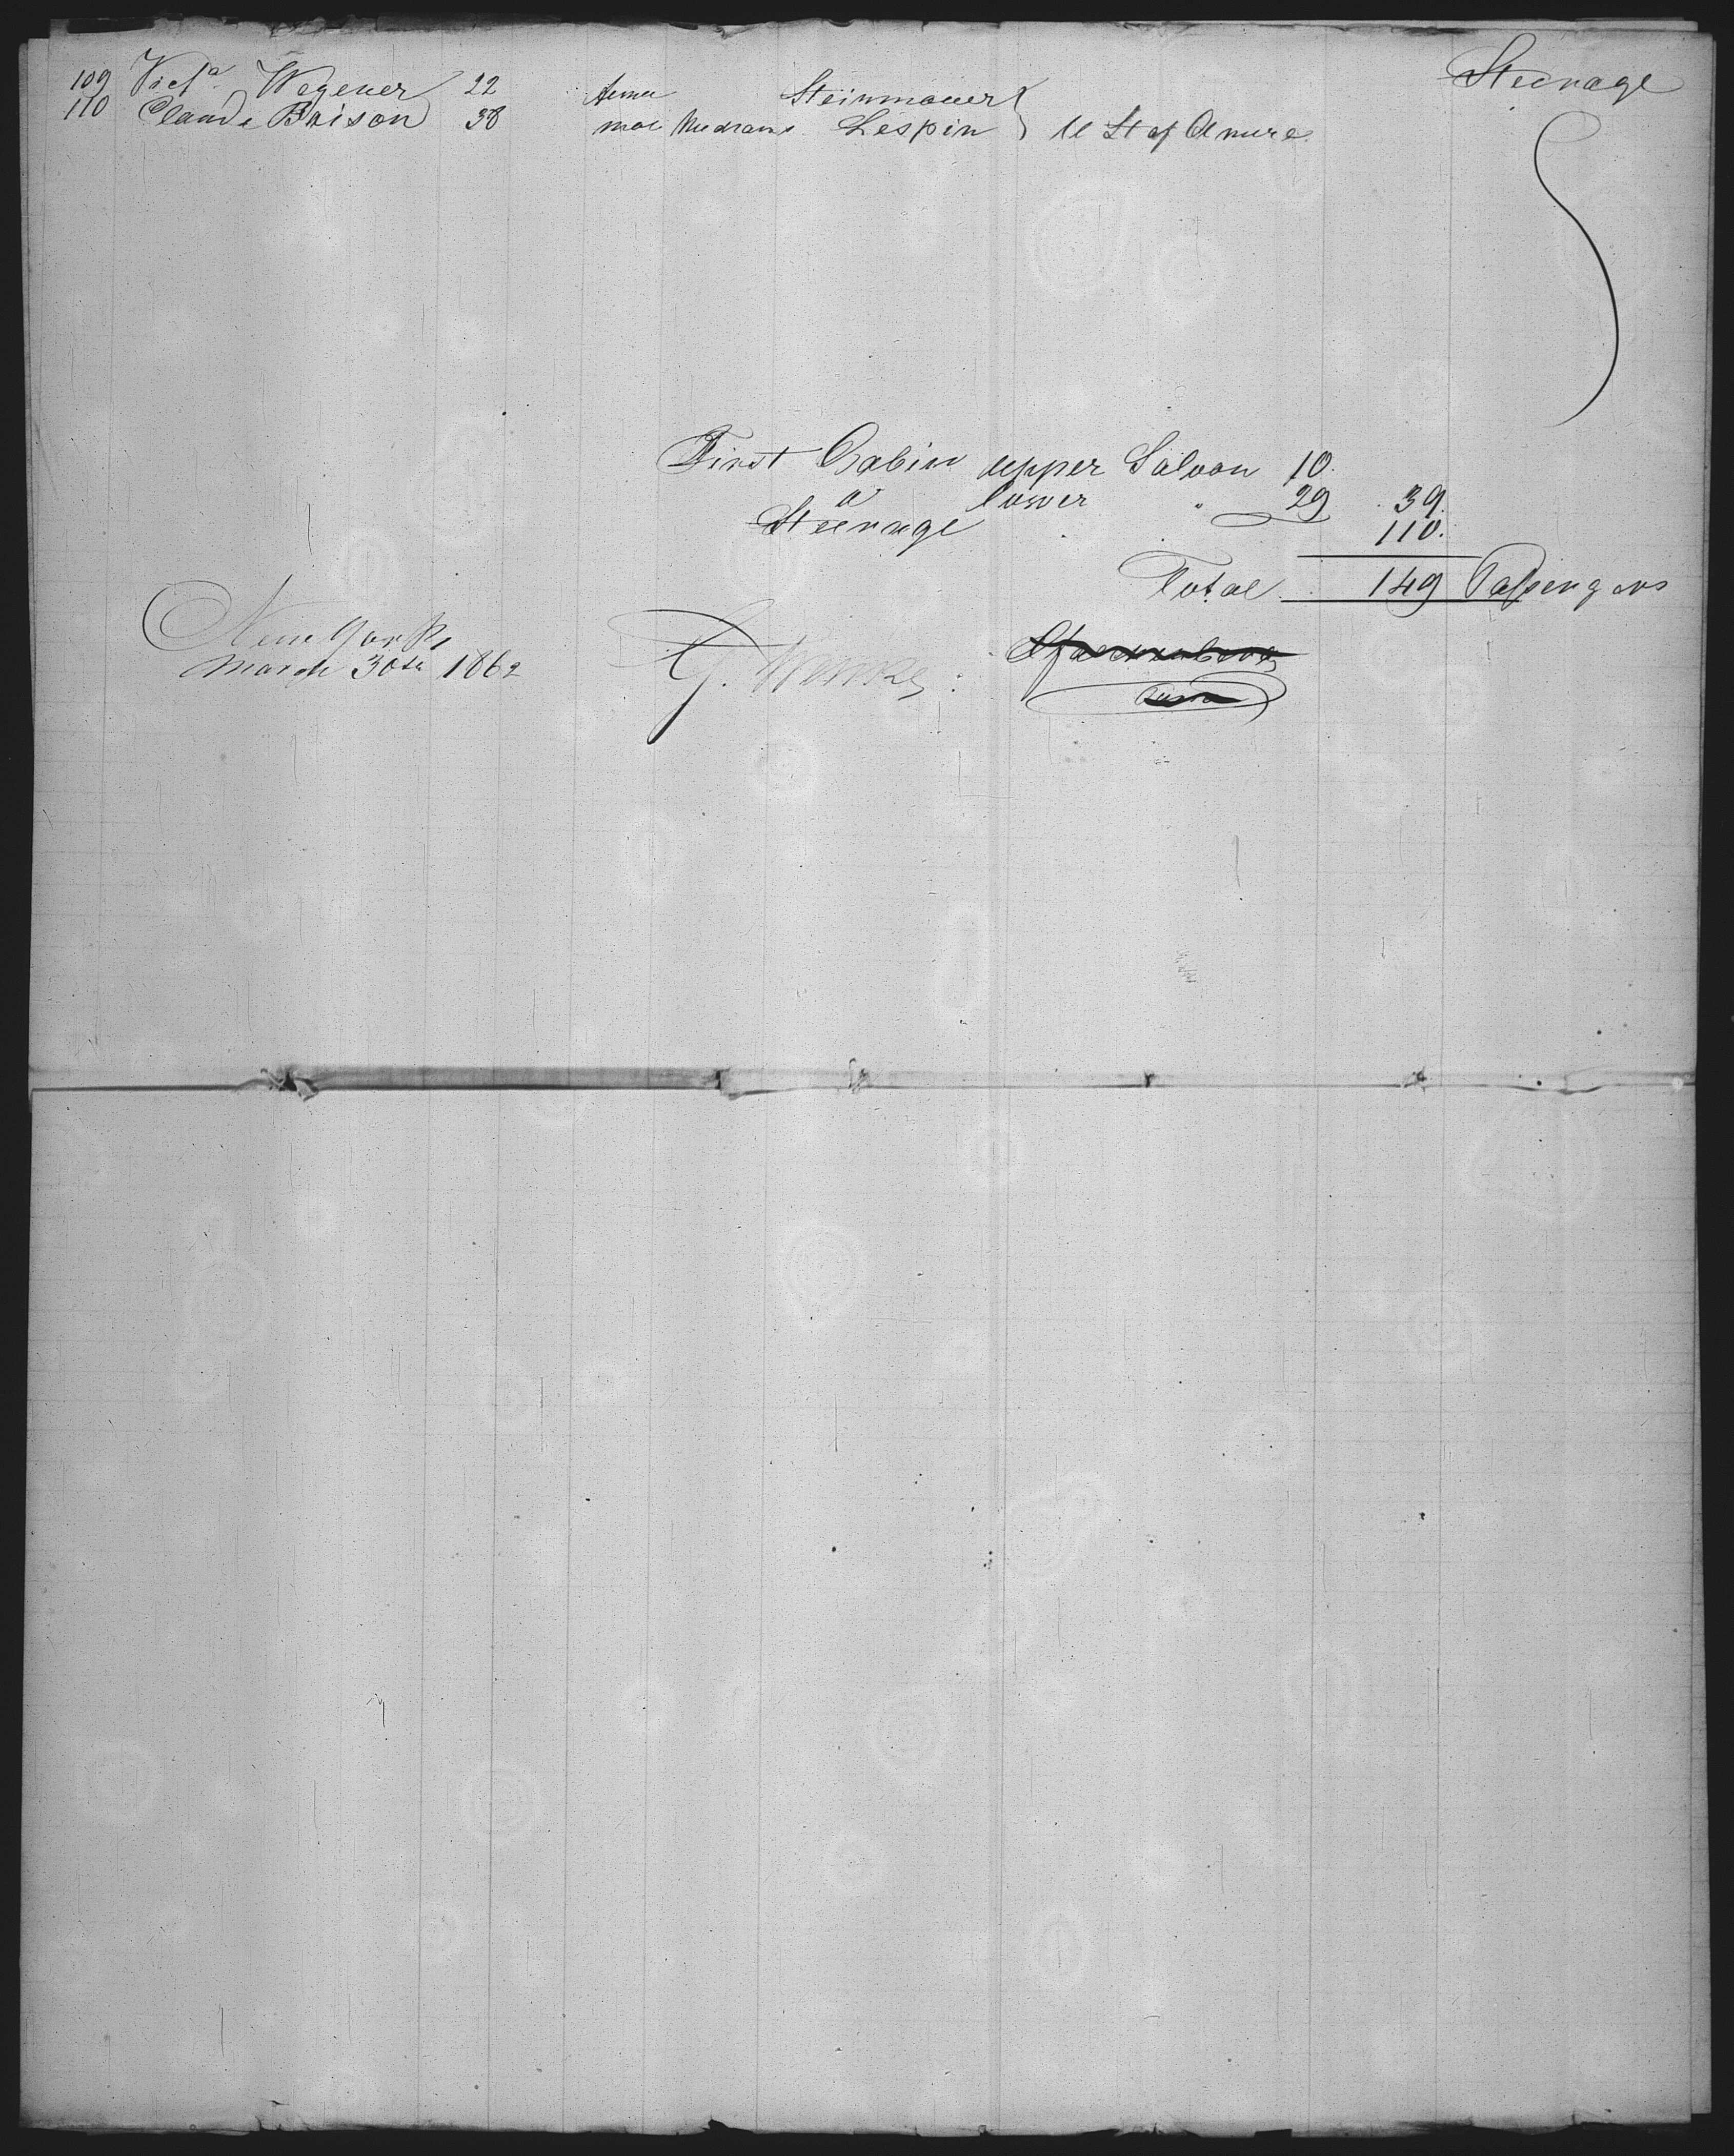 Steerage
109 Vict.a Wegener 22 Steinmauer
110 Claude Brison 38 mal Lespin U St of
First Cabin upper Saloon 10.
" lower " 29 . 39.
Steerage . . 110.
Total . 149 Passengers
New York
March 30th 1862
G. Wenke